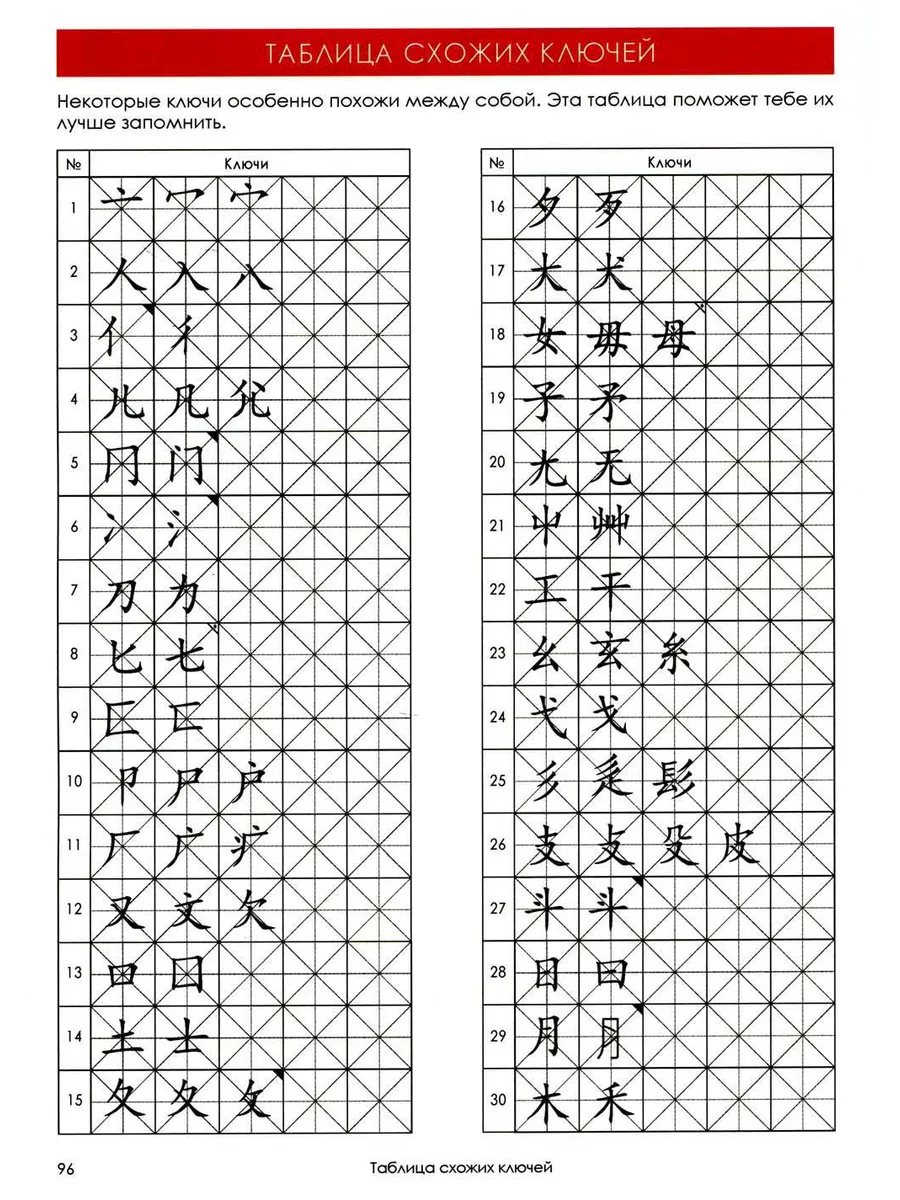 ТАБЛИЦА СХОЖИХ КЛЮЧЕЙ
Некоторые ключи особенно похожи между собой. Эта таблица поможет тебе их
лучше запомнить.
№ Ключи
1 亠 冖 宀
2 人 入 八
3 亻 彳
4 儿 几
5 冂 门
6 冫 氵
7 刀 力
8 匕
9 匚 匸
10 卩 尸 户
11 厂 广 疒
12 又 文 欠
13 口 囗
14 土 士
15 夂 夊 攵
№ Ключи
16 夕 歹
17 大 犬
18 女 毋 母
19 子 矛
20 尢 无
21 屮 艸
22 工 干
23 幺 玄 糸
24 弋 戈
25 彡 髟
26 支 攴 殳 皮
27 斗
28 日 曰
29 月
30 木 禾
96 Таблица схожих ключей